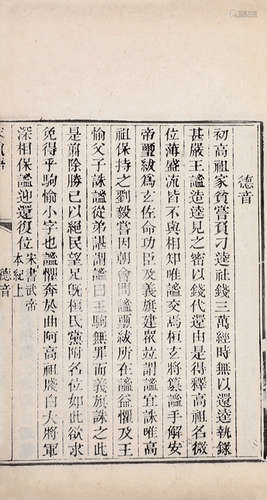 德音
初高祖家貧嘗負刁逵社錢三萬經時無以還逵執錄
甚嚴王謐造逵見之密以錢代還由是得釋高祖名微
位薄盛流皆不與相知唯謐交焉桓玄將篡謐手解安
帝璽紱爲玄佐命功臣及義旗建衆並謂謐宜誅唯高
祖保持之劉毅嘗因朝會問謐璽紱所在謐益懼及王
愉父子誅謐從弟諶謂謐曰王駒無罪而義旗誅之此
是剪除勝已以絕民望兄旣桓氏黨附名位如此欲求
免得乎駒愉小字也謐懼奔於曲阿高祖牋白大將軍
深相保謐迎還復位
宋書武帝
本紀上
德音